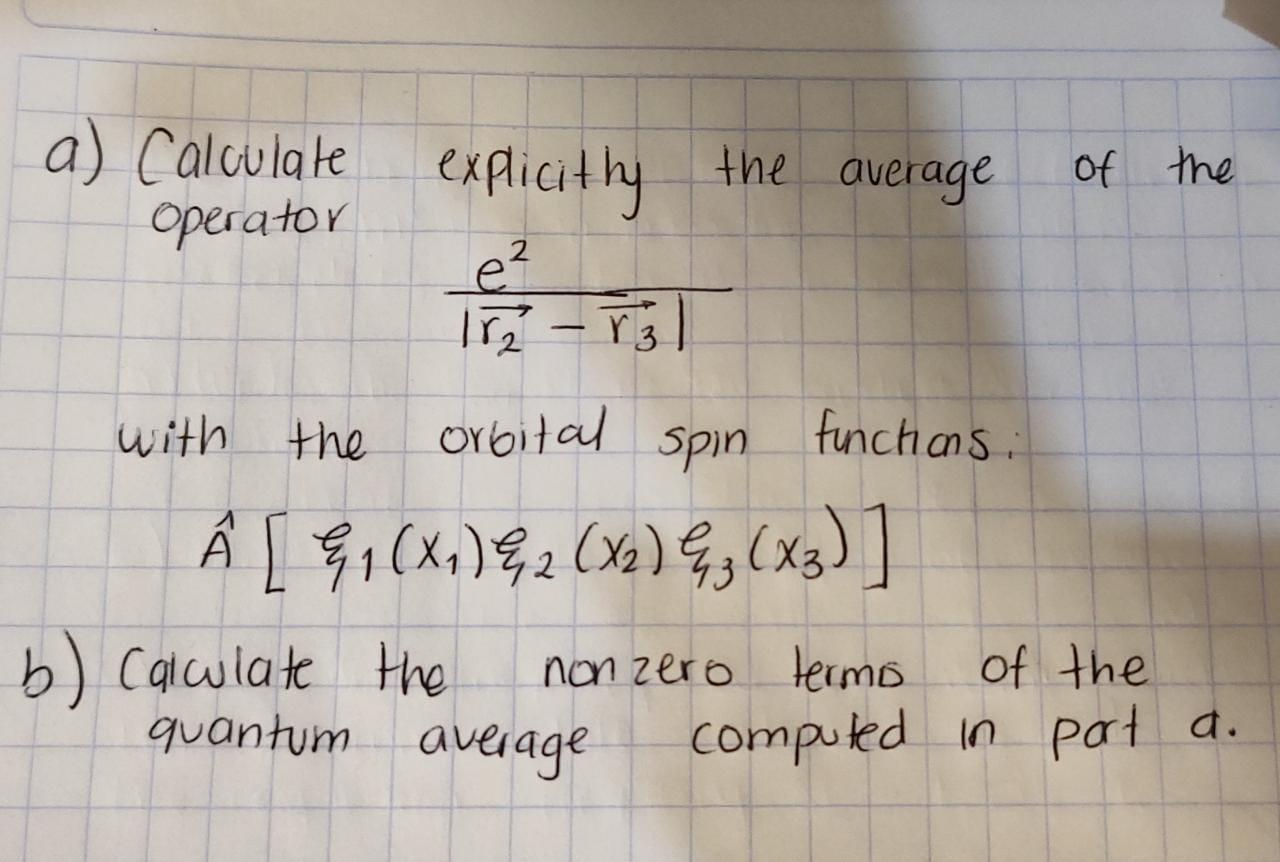 a) Calculate explicithy the average of the
operator
e²
|r⃗₂ − r⃗₃|
with the orbital spin functions:
Â [ ξ₁(x₁)ξ₂(x₂)ξ₃(x₃) ]
b) Calculate the nonzero terms of the
quantum average computed in part a.